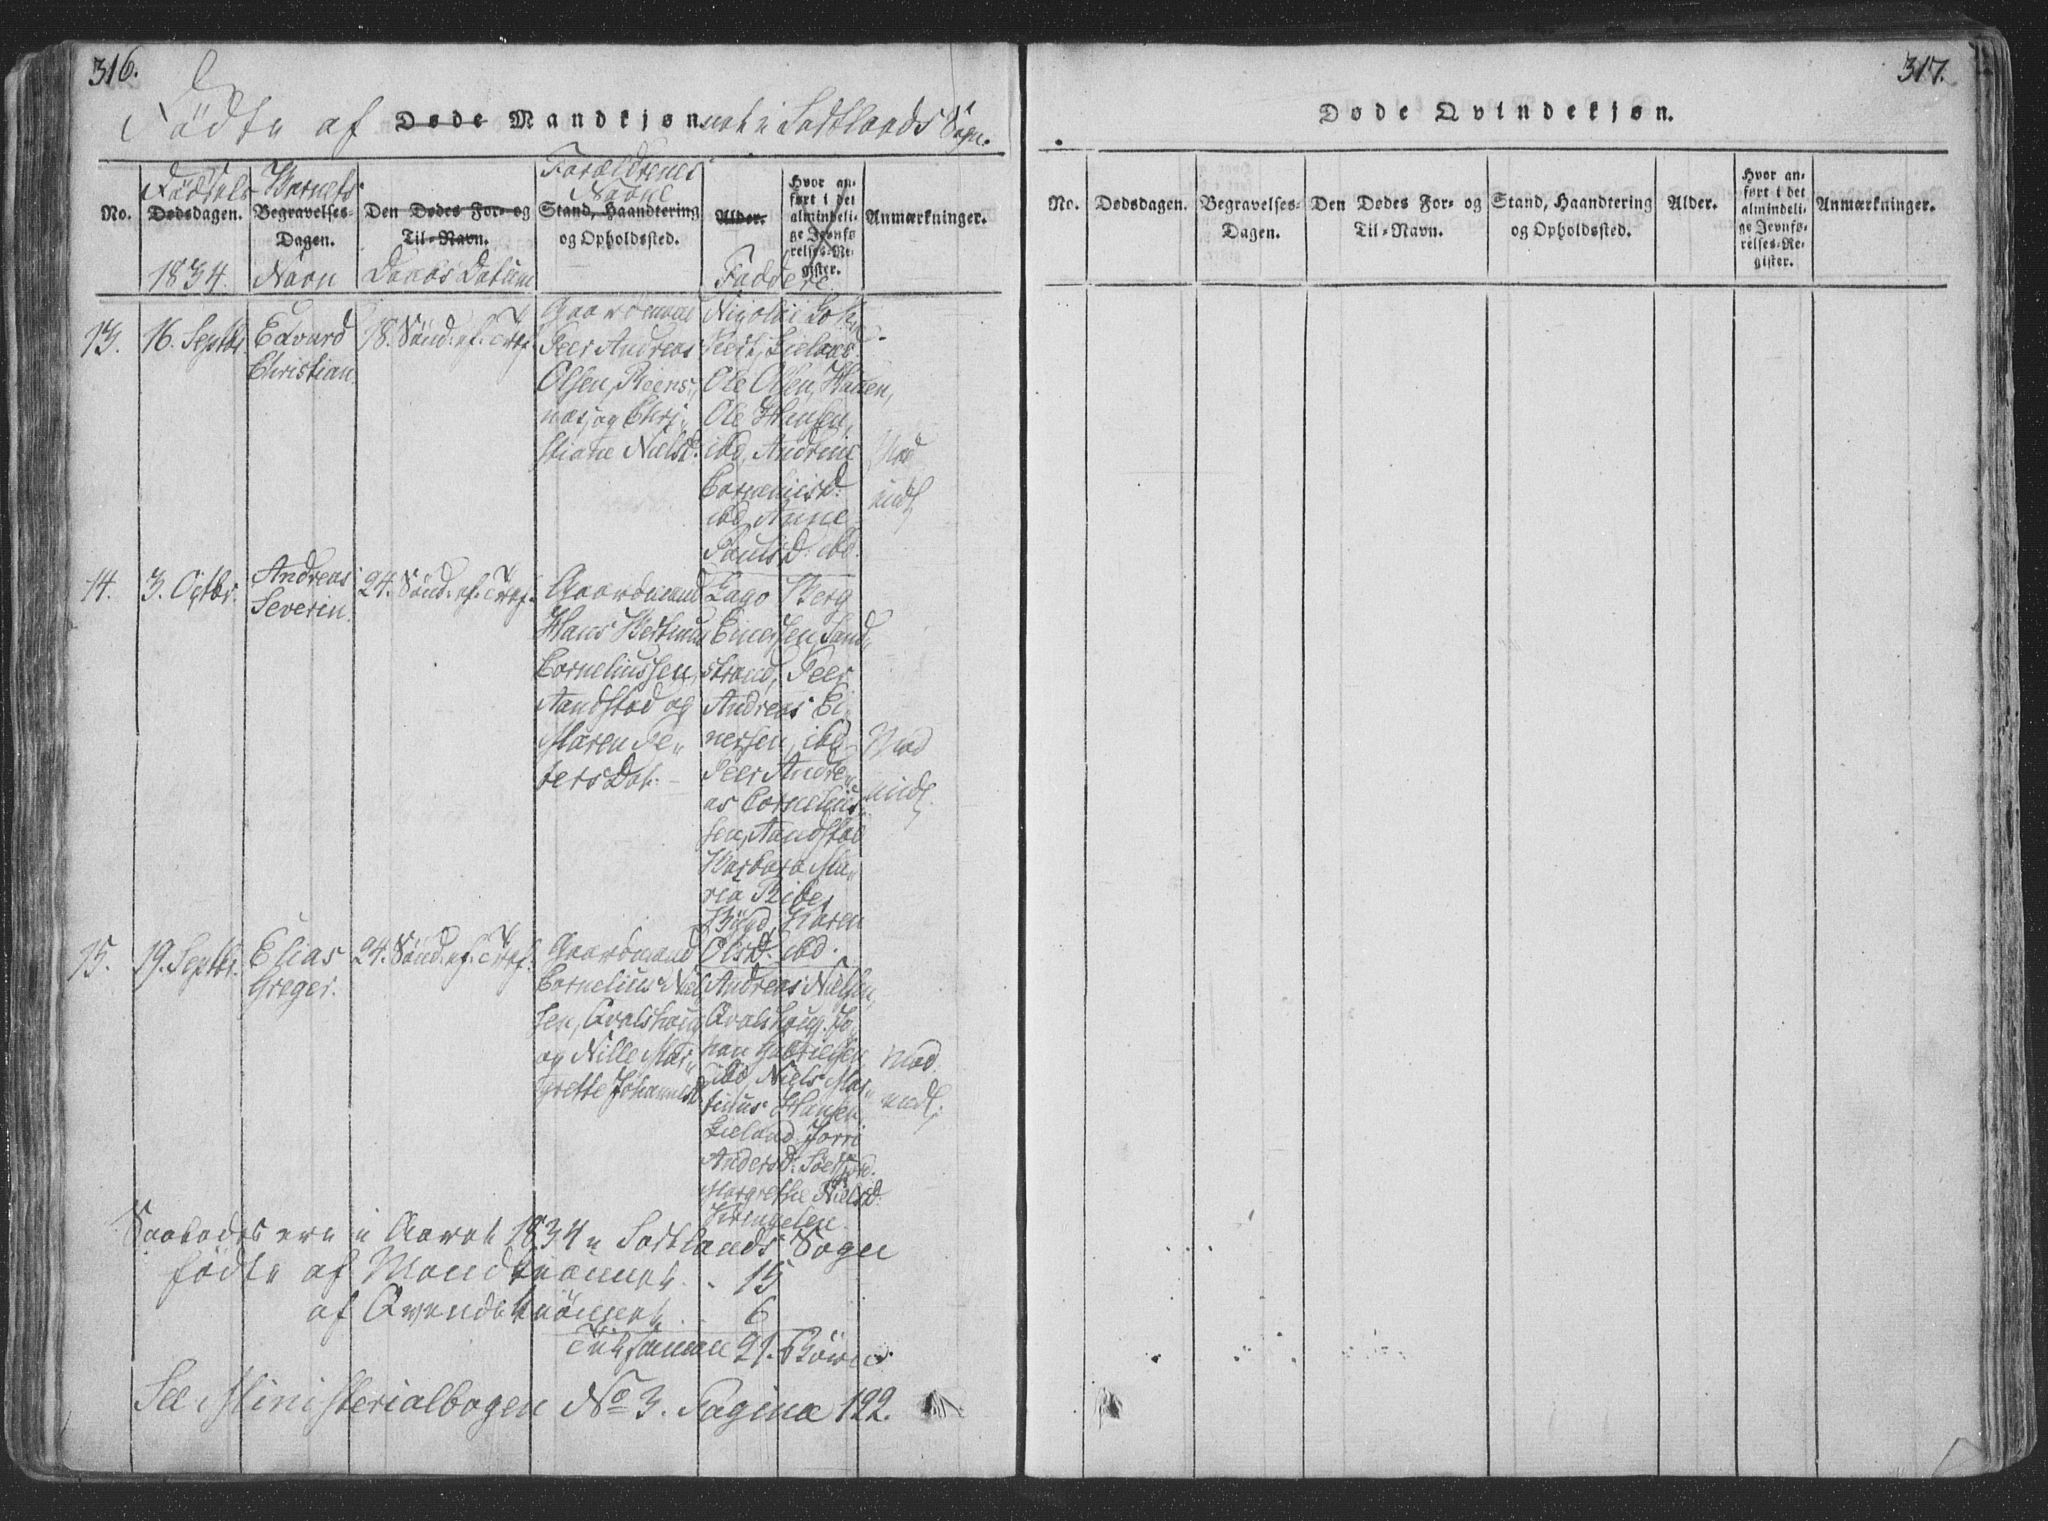 316.
Fødte af Døde Mandkjønnet i Sortlands Sogn.
No.
Fødsels
Dødsdagen.
1834.
Barnets
Begravelses-
Dagen.
Navn
Den Dødes For- og
Til-Navn.
Daabs Datum
Forældrenes
Navne
Stand, Haandtering
og Opholdssted.
Alder.
Faddere
Hvor an-
ført i det
almindeli-
ge Jevnfø-
relses-Re-
gister.
Anmærkninger.
13.
16. Septbr
Edvard
Christian.
18. Sønd. ef. Tref.
Gaardmand
Peer Andreas
Olsen, Reens-
næs og Chri-
stiane Nielsd.
Nicolai
Ole Olsen,
Ole Hansen,
ibd, Andrine
Corneliusd.
ibd, Anne
Paulsd. ibd.
Mod
indf
14.
3. Octbr.
Andreas
Severin.
24. Sønd. ef. Tref.
Gaardmand
Hans
Corneliussen,
Aandstad og
Maren Pe-
tersDat.
Lago Berg
Einersen, Sand-
strand, Peer
Andreas Ei-
nersen, ibd
Peer Andre-
as Cornelius-
sen, Aandstad
Barbara Ma-
ria Ribe,
Bøgd, Maren
Olsd. ibd.
Mod
indf.
15.
19. Septbr.
Elias
Greger.
24. Sønd. ef. Tref.
Gaardmand
Cornelius Niel-
sen, Qvalshaug
og Nille Mar-
grethe Johannesd
Andreas Nielsen,
Qvalshaug. Jo-
han Gabrielsen
ibd, Niels Mar-
tinus Hansen
Andersd.
Margrethe Nielsd.
Kringelen.
Mod.
indf.
Saaledes ere i Aaret 1834 i Sortlands Sogn
fødte af Mandkiønnet 15
af Qvendekiønnet 6
Tilsammen 21. Børn.
See Ministerialbogen No 3. Pagina 122.
317.
Døde Qvindekjøn.
No.
Dødsdagen.
Begravelses-
Dagen.
Den Dødes For- og
Til-Navn.
Stand, Haandtering
og Opholdssted.
Alder.
Hvor an-
ført i det
almindeli-
ge Jevnfø-
relses-Re-
gister.
Anmærkninger.